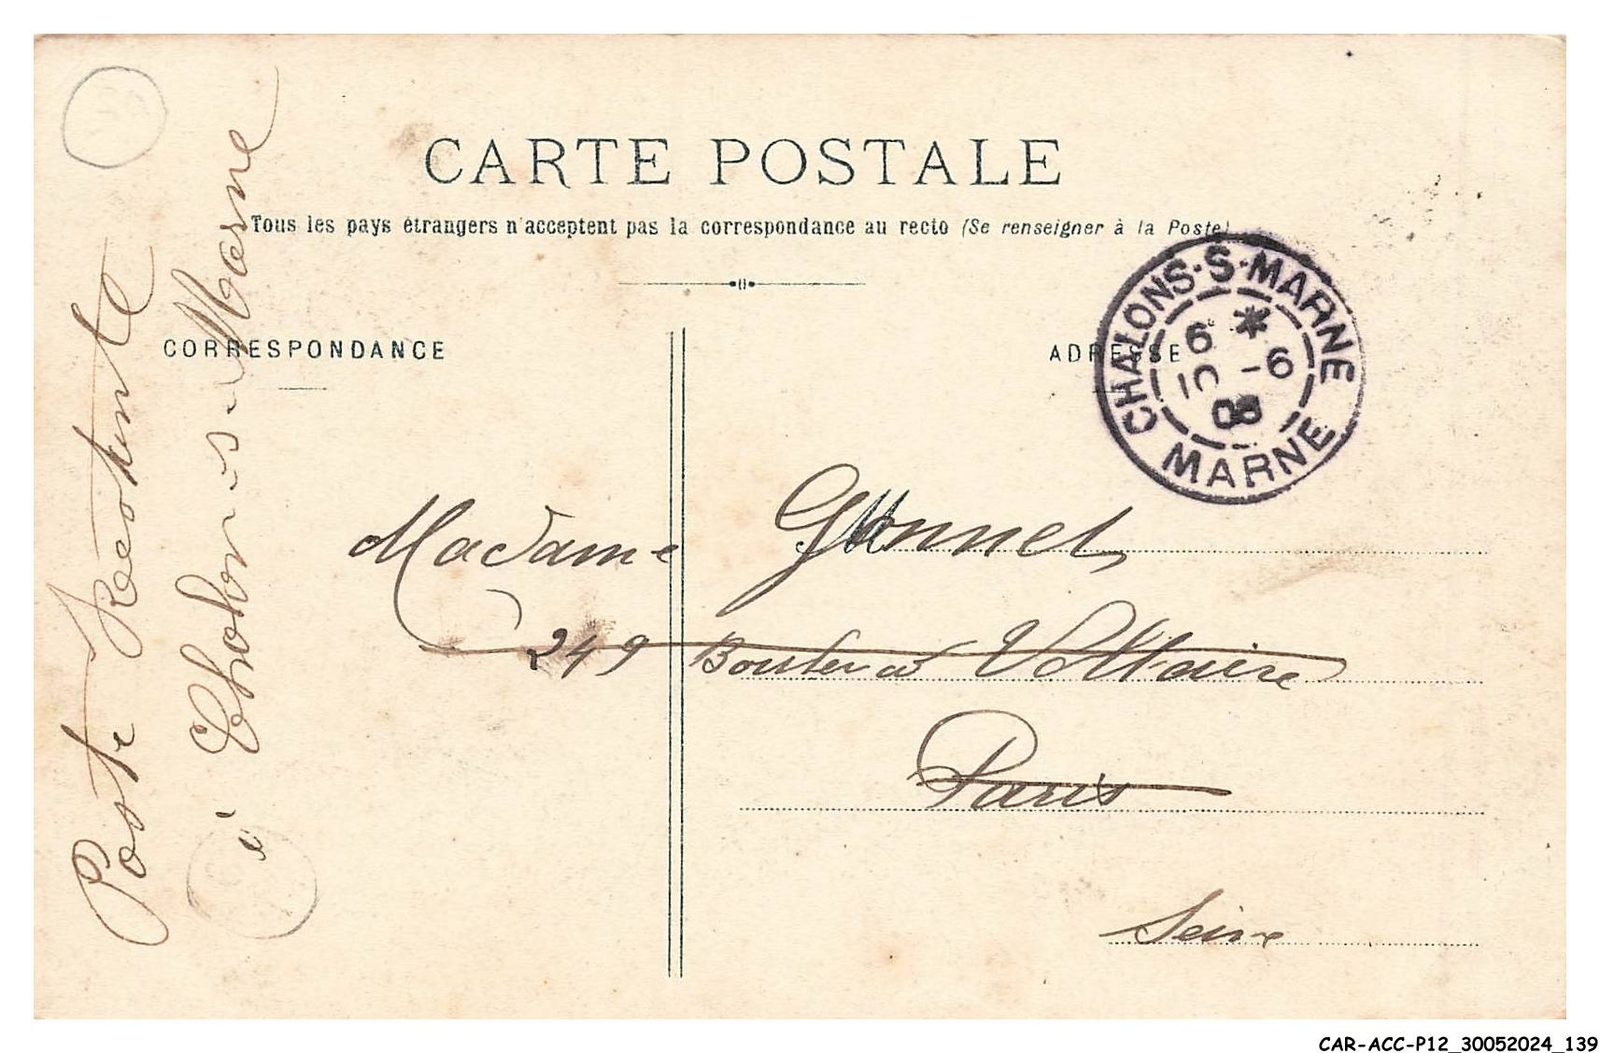 CARTE POSTALE
Tous les pays étrangers n'acceptent pas la correspondance au recto (Se renseigner à la Poste)
CORRESPONDANCE
ADRESSE
CHALONS-S-MARNE
6 *
10 -6
MARNE
Madame Gonnet
249 Boulevard Voltaire
Paris
Seine
Poste Restante
à Chalons s/ Marne
CAR-ACC-P12_30052024_139